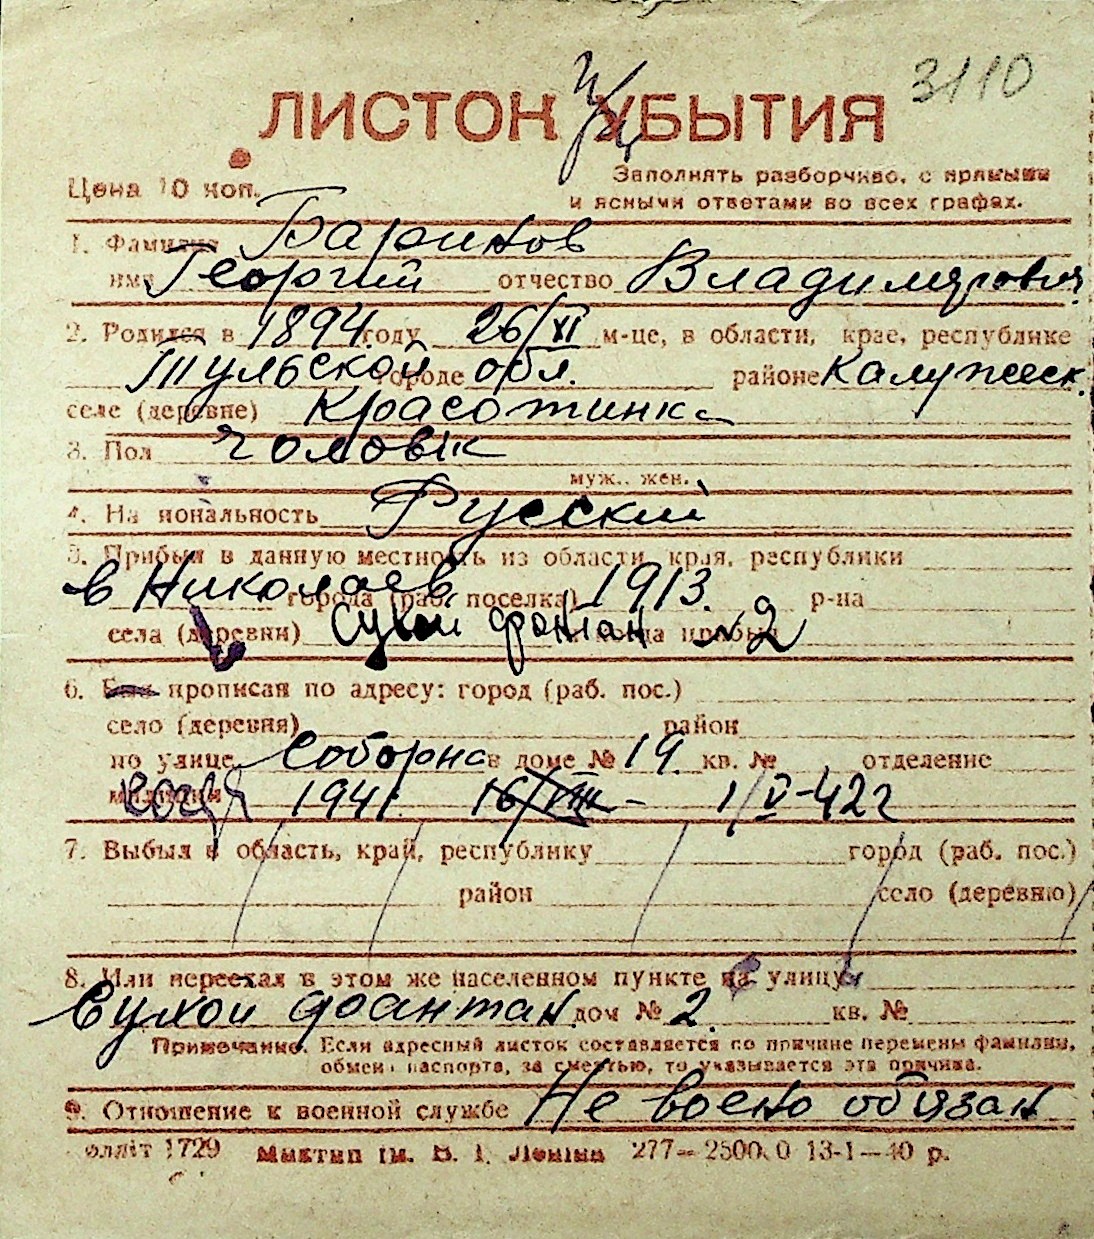 3110
ЛИСТОК УБЫТИЯ
Цена 10 коп.
Заполнять разборчиво, с прямыми
и ясными ответами во всех графах.
1. Фамилия Баринов
имя Георгий отчество Владимирович
2. Родился в 1894 году 26/XI м-це, в области, крае, республике
Тульской городе обл. районе Калужск.
селе (деревне) Красотинка
3. Пол чоловік
муж., жен.
4. Национальность Русский
5. Прибыл в данную местность из области, края, республики
в Николаев города (раб. поселка) 1913. р-на
села (деревни) Сухой фонтан №2
6. Был прописан по адресу: город (раб. пос.)
село (деревня) район
по улице Соборна в доме № 19 кв. № отделение
милиции 1941 16/VIII - 1/V-42г
7. Выбыл в область, край, республику город (раб. пос.)
район село (деревню)
8. Или переехал в этом же населенном пункте на улицу
Сухой фантан дом № 2. кв. №
Примечание. Если адресный листок составляется по причине перемены фамилии,
обмена паспорта, за смертью, то указывается эта причина.
9. Отношение к военной службе Не воено обязан
1729 277-2500.0 13-1-40 р.